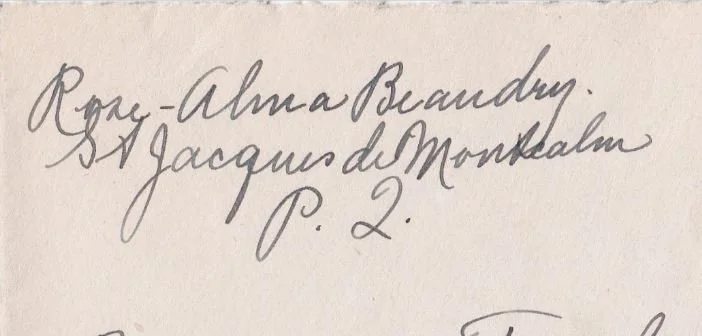 Rose-Alma Beaudry.
St Jacques de Montcalm
P. Q.